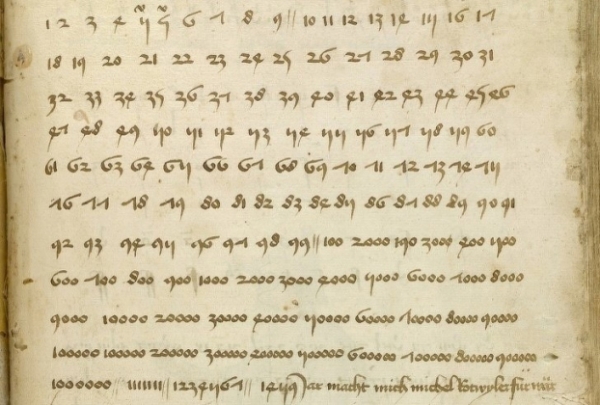 1 2 3 4 5 5 6 7 8 9 // 10 11 12 13 14 15 16 17
18 19 20 21 22 23 24 25 26 27 28 29 30 31
32 33 34 35 36 37 38 39 40 41 42 43 44 45 46
47 48 49 50 51 52 53 54 55 56 57 58 59 60
61 62 63 64 65 66 67 68 69 70 71 72 73 74 75
76 77 78 79 80 81 82 83 84 85 86 87 88 89 90 91
92 93 94 95 96 97 98 99 // 100 2000 190 3000 400 500
600 700 800 900 1000 2000 3000 4000 5000 6000 7000 8000
9000 10000 20000 30000 40000 50000 60000 70000 80000 90000
100000 100000 200000 300000 400000 500000 600000 700000 800000 900000
1000000 // 111111 // 1234567 // 1459 macht mich michel Rotwyler für wär